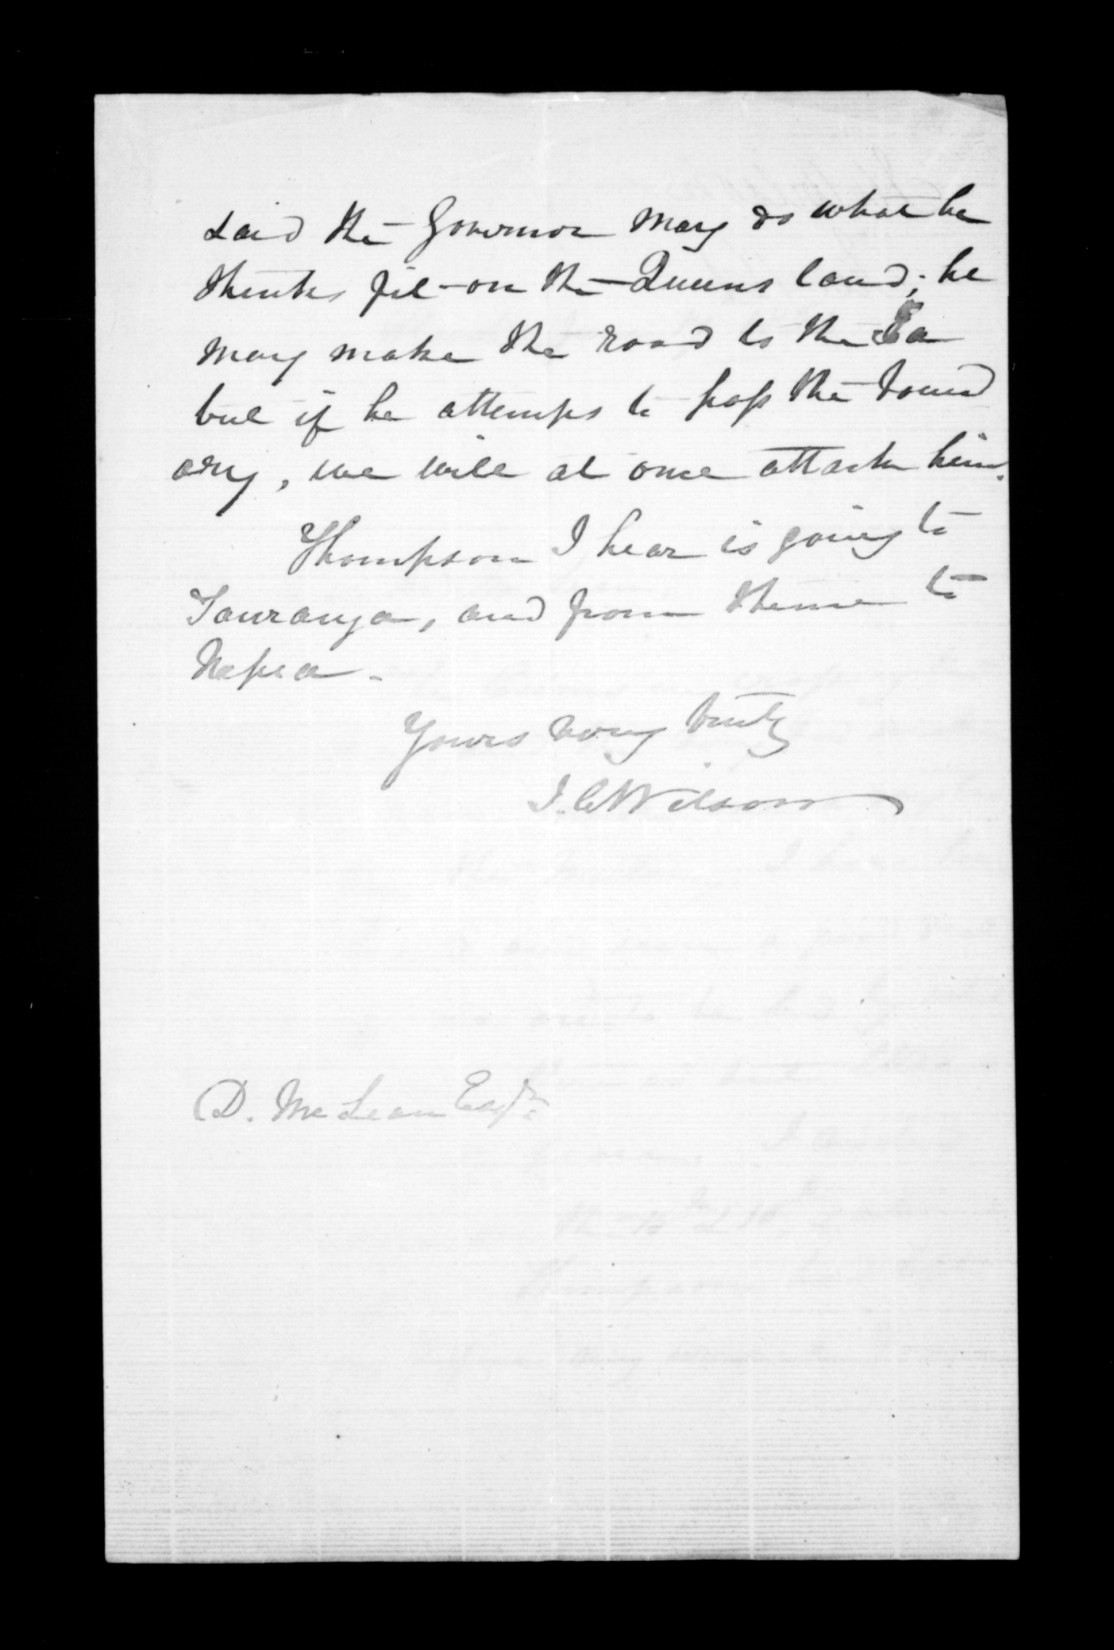 said the Governor may do what he
thinks fit on the Queens land; he
may make the road to the Ia
but if he attemps to pass the bound
ary, we will at once attack him.
Thompson I hear is going to
Tauranga, and from thence to
Napier.
Yours very truly
J. C. Wilson
D. McLean Esqre